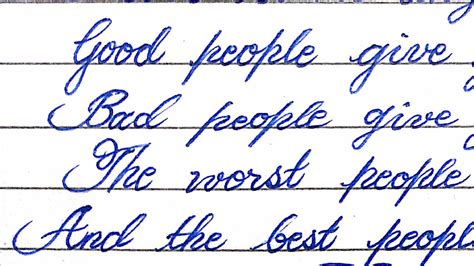 Good people give
Bad people give
The worst people
And the best people